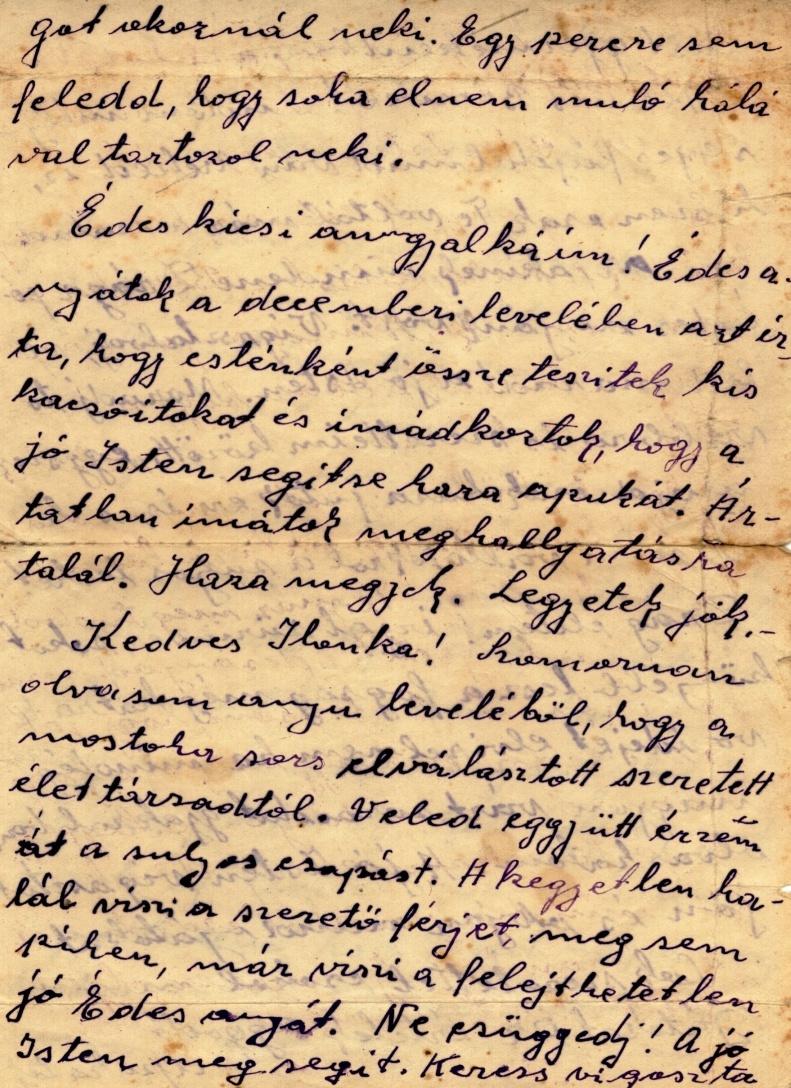 got okoznál neki. Egy percre sem
feledd, hogy soha elnem muló hálá
val tartozol neki.
Édes kicsi angyalkáim! Édesa-
nyátok a decemberi levelében azt ír-
ta, hogy esténként össze teszitek kis
kacsóitokat és imádkoztok, hogy a
jó Isten segítse haza apukát. Ár-
tatlan imátok meghallgatásra
talál. Haza megyek. Legyetek jók.-
Kedves Ilonka! Szomoruan
olvasom anyu leveléből, hogy a
mostoha sors elválásztott szeretett
élettársadtól. Veled eggyütt érzem
át a sulyos csapást. A kegyetlen ha-
lál viszi a szerető férjet, meg sem
pihen, már viszi a felejthetetlen
jó Édes anyát. Ne csüggedj! A jó
Isten megsegit. Keress vigaszta